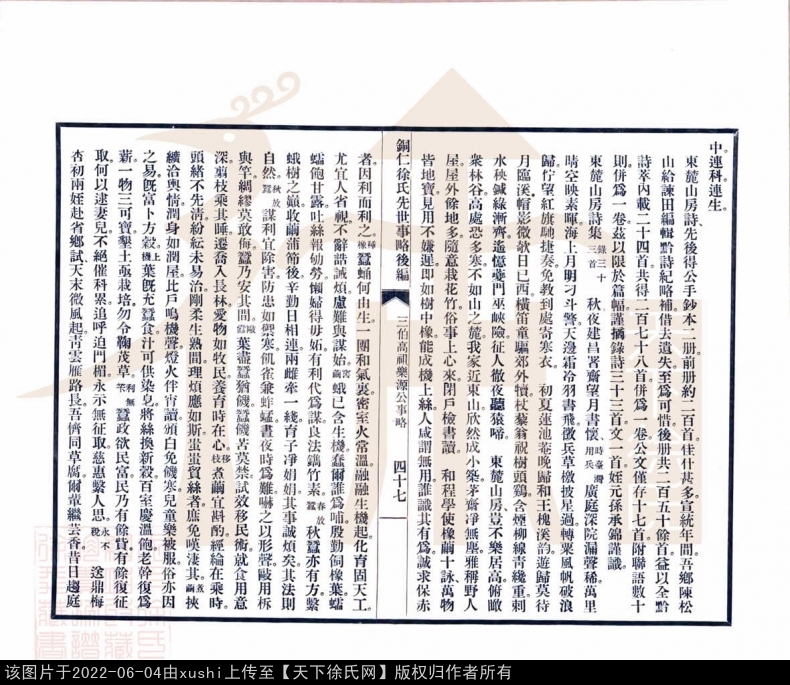 中連科連生
東麓山房詩先後得公手鈔本二册前册約二百首佳什甚多宣統年間吾鄉陳松
山給諫田編輯黔詩紀略補借去遺失至為可惜後册共二百五十餘首益以全黔
詩萃內載二十四首共得二百七十八首併為一卷公文僅存十七首附聯語數十
則併為一卷茲以限於篇幅謹摘錄詩三十三首文一首姪元孫承錦謹識
東麓山房詩集 錄三十三首 秋夜建昌署齋望月書懷 時臺灣用兵 廣庭深院漏聲稀萬里
晴空映素暉海上月明刁斗警天邊霜冷羽書飛徵兵草檄披星過轉粟風帆破浪
歸佇望紅旗馳捷奏免教到處寄寒衣 初夏蓮池菴晚歸和王槐溪韵遊歸莫待
月臨溪帽影微欹日已西橫笛童騎郊外犢杖藜翁祝樹頭鷄含煙柳線青纔重刺
水秧鍼綠漸齊遙憶夔門巫峽險征人徹夜聽猿啼 東麓山房豈不樂居高俯瞰
衆林谷高處恐多寒不如山之麓我家近東山欣然成小築茅齋凈無塵雅稱野人
屋屋外餘地多隨意栽花竹俗事上心來閉戶檢書讀 和程學使橡繭十詠萬物
皆地寶見用不嫌遲即如樹中橡能成機上絲人咸謂無用誰識其有為誠求保赤
銅仁徐氏先世事略後編 三伯高祖樂源公事略 四十七
者因利而利之 橡 蠶蛹何由生一團和氣裏密室火常溫融融生機起化育固天工
尤宜人省視不辭諧誡煩慮難與謀始 繭 蛾已含生機蠢爾誰為哺殷勤伺橡葉蠕
蠕飽甘露吐絲報劬勞懶婦得毋妬有利代為謀良法鐫竹素 春放蠶 秋蠶亦有方繫
蛾樹之巔收繭蒲節後辛勤日相連兩雌牽一綫育子凈娟娟其事誠煩矣其法則
自然 秋放蠶 謀利宜除害防患如禦寒飢雀兼蚱蜢晝夜時為難嚇之以形聲毆用柝
與竿綢繆莫敢侮蠶乃安其間 葉盡蠶猶饑蠶饑苦莫禁試效移民術就食用意
深剪枝乘其睡遷喬入長林愛物如牧民養育時在心 移枝 煮繭宜斟酌經綸在乘時
頭緒不先清紛紜未易治剛柔生熟間理煩應如斯蚩蚩貿絲者庶免嘆淒其 煮繭 挾
纊洽輿情潤身如潤屋比戶鳴機聲燈火伴宵讀頒白免饑寒兒童樂被服俗亦因
之易旣富卜方穀 上機 葉旣充蠶食汁可供染皂將絲換新穀百室慶溫飽老幹復為
薪一物三可寶墾土亟栽培勿令鞠茂草 利無棄 蠶政欲民富民乃有餘貲有餘復征
取何以逮妻兒不絕催科累追呼迫門楣永示無征取慈惠繫人思 永不稅 送鼎梅
杏初兩姪赴省鄉試天末微風起青雲雁路長吾儕同草腐爾輩繼芸香昔日趨庭
该图片于2022-06-04由xushi上传至【天下徐氏网】版权归作者所有